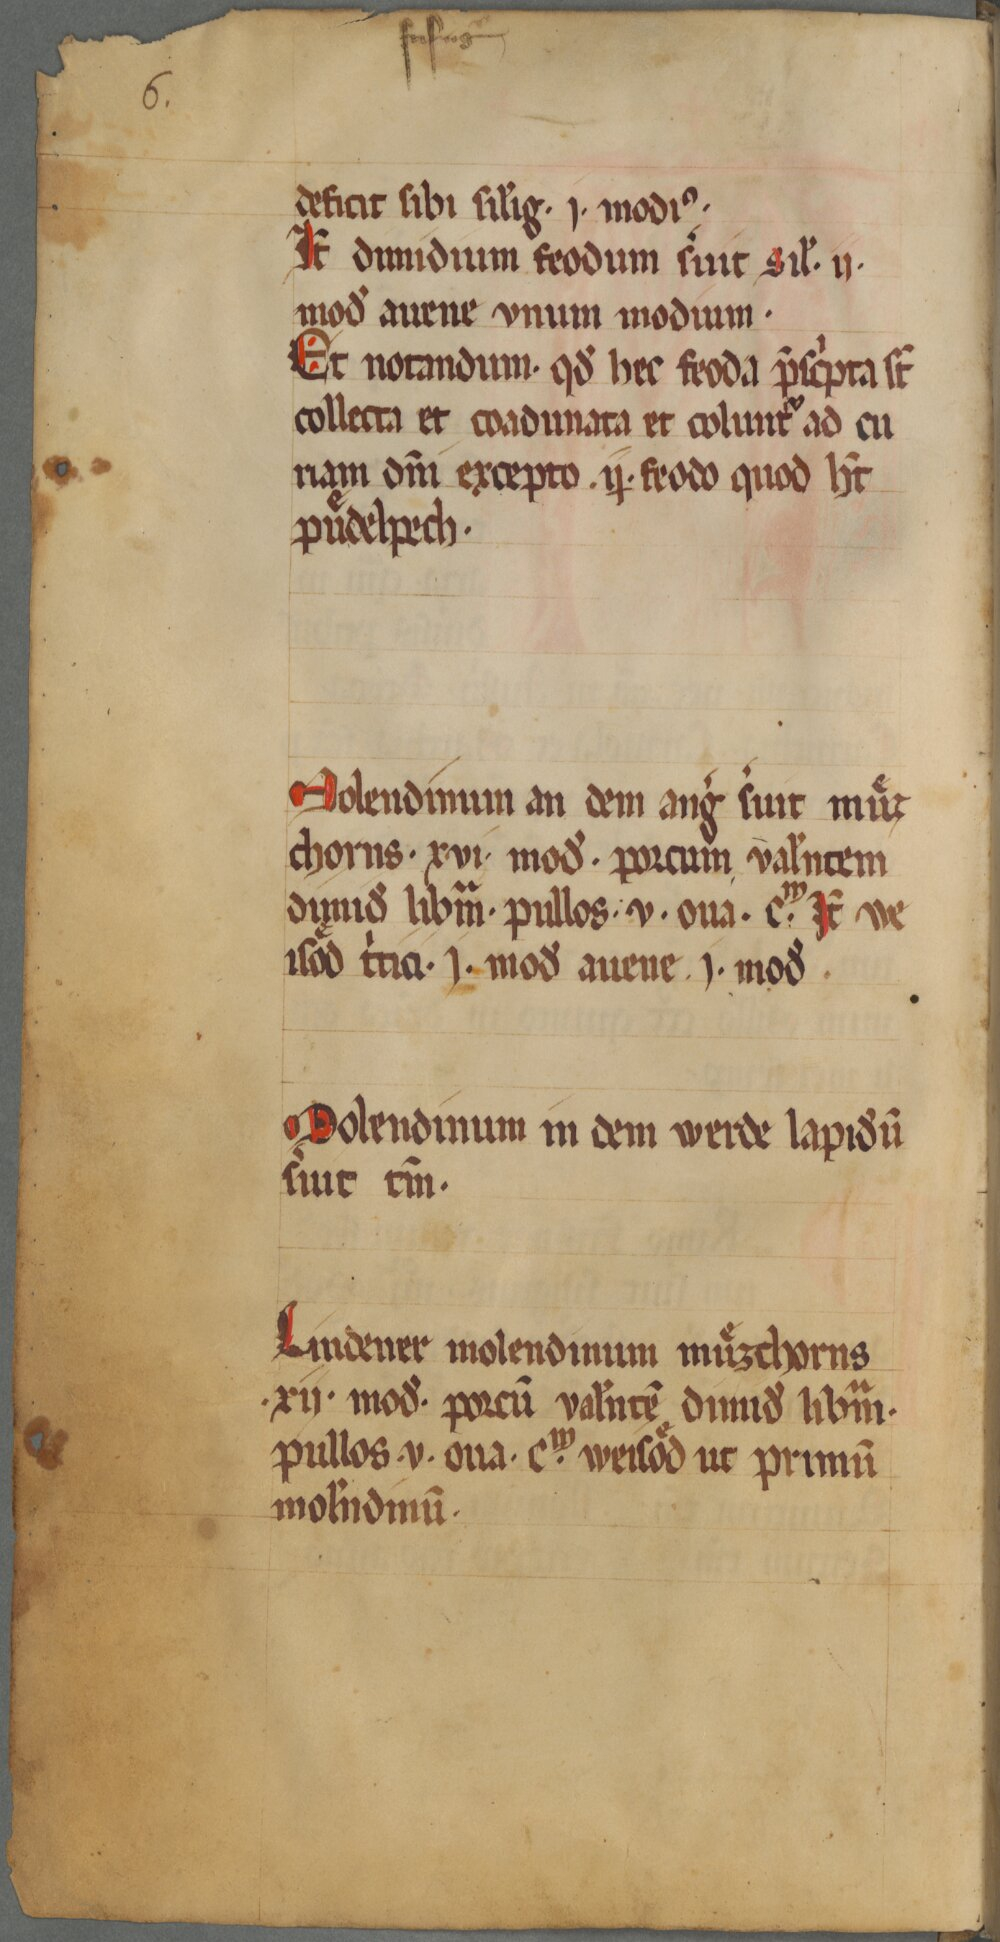 6.
deficit sibi silig. j. modi⁹.
It̄ dimidium feodum s͛uit Sil̄. ij.
mod̄ auene vnum modium.
Et notandum. qd̄ hec feoda p̄sc͛pta st̄
collecta et coadunata et colunt᷑ ad cu
riam dn̄i excepto .ij. feodo quod hn̄t
puͤdelpech.
Molendinum an dem ang͛ s͛uit muͤz
chorns. xvi. mod̄. porcum val̄ntem
dimid̄ libm̄. pullos. v. oua. cͫ. It̄ we
isoͤd t͛tici. j. mod̄ auene. j. mod̄.
Molendinum in dem werde lapid̄ū
s͛uit tm̄.
Lindener molendinum muͤzchorns
.xij. mod̄. porcū val̄ntē dimid̄ libm̄.
pullos. v. oua. cͫ. weisoͤd ut primū
mol̄ndinū.